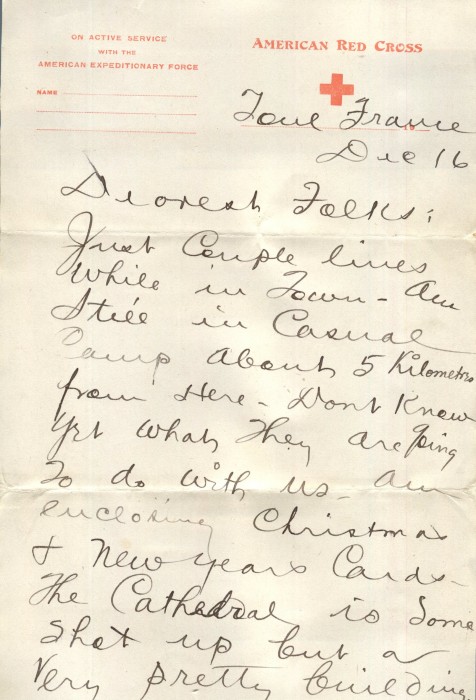 ON ACTIVE SERVICE
WITH THE
AMERICAN EXPEDITIONARY FORCE
NAME
AMERICAN RED CROSS
Toul France
Dec 16
Dearest Folks;
Just Couple lines
While in Town - Am
Still in Casual
Camp about 5 Kilometres
from Here - Dont Know
Yet what They are going
To do with us - Am
enclosing Christmas
& New Years Cards -
The Cathedral is Some
Shot up but a
Very pretty building